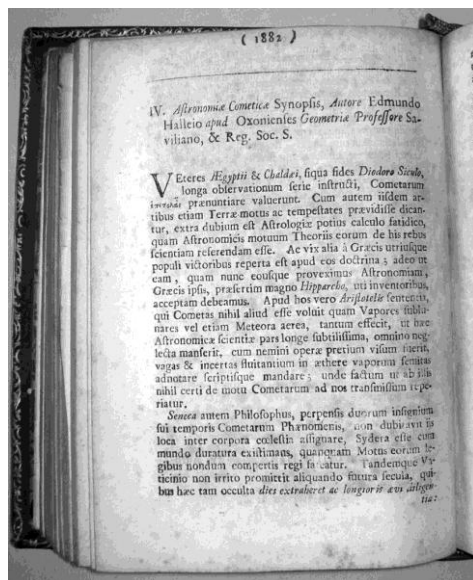 ( 1882 )
IV. Astronomiæ Cometicæ Synopsis, Autore Edmundo
Halleio apud Oxonienses Geometriæ Professore Sa-
viliano, & Reg. Soc. S.
VEteres Ægyptii & Chaldæi, siqua fides Diodoro Siculo,
longa observationum serie instructi, Cometarum
ἐπιτολὰς prænuntiare valuerunt. Cum autem iisdem ar-
tibus etiam Terræ motus ac tempestates prævidisse dican-
tur, extra dubium est Astrologiæ potius calculo fatidico,
quam Astronomicis motuum Theoriis eorum de his rebus
scientiam referendam esse. Ac vix alia à Græcis utriusque
populi victoribus reperta est apud eos doctrina; adeo ut
eam, quam nunc eousque proveximus Astronomiam,
Græcis ipsis, præsertim magno Hipparcho, uti inventoribus,
acceptam debeamus. Apud hos vero Aristotelis sententia,
qui Cometas nihil aliud esse voluit quam Vapores sublu-
nares vel etiam Meteora aerea, tantum effecit, ut hæc
Astronomicæ scientiæ pars longe subtilissima, omnino neg-
lecta manserit, cum nemini operæ pretium visum fuerit,
vagas & incertas fluitantium in æthere vaporum semitas
adnotare scriptisque mandare; unde factum ut ab illis
nihil certi de motu Cometarum ad nos transmissum repe-
riatur.
Seneca autem Philosophus, perpensis duorum insignium
sui temporis Cometarum Phænomenis, non dubitavit iis
loca inter corpora cœlestia assignare, Sydera esse cum
mundo duratura existimans, quanquam Motus eorum le-
gibus nondum compertis regi fateatur. Tandemque Va-
ticinio non irrito promittit aliquando futura secula, qui-
bus hæc tam occulta dies extraheret ac longioris ævi diligen-
tia: